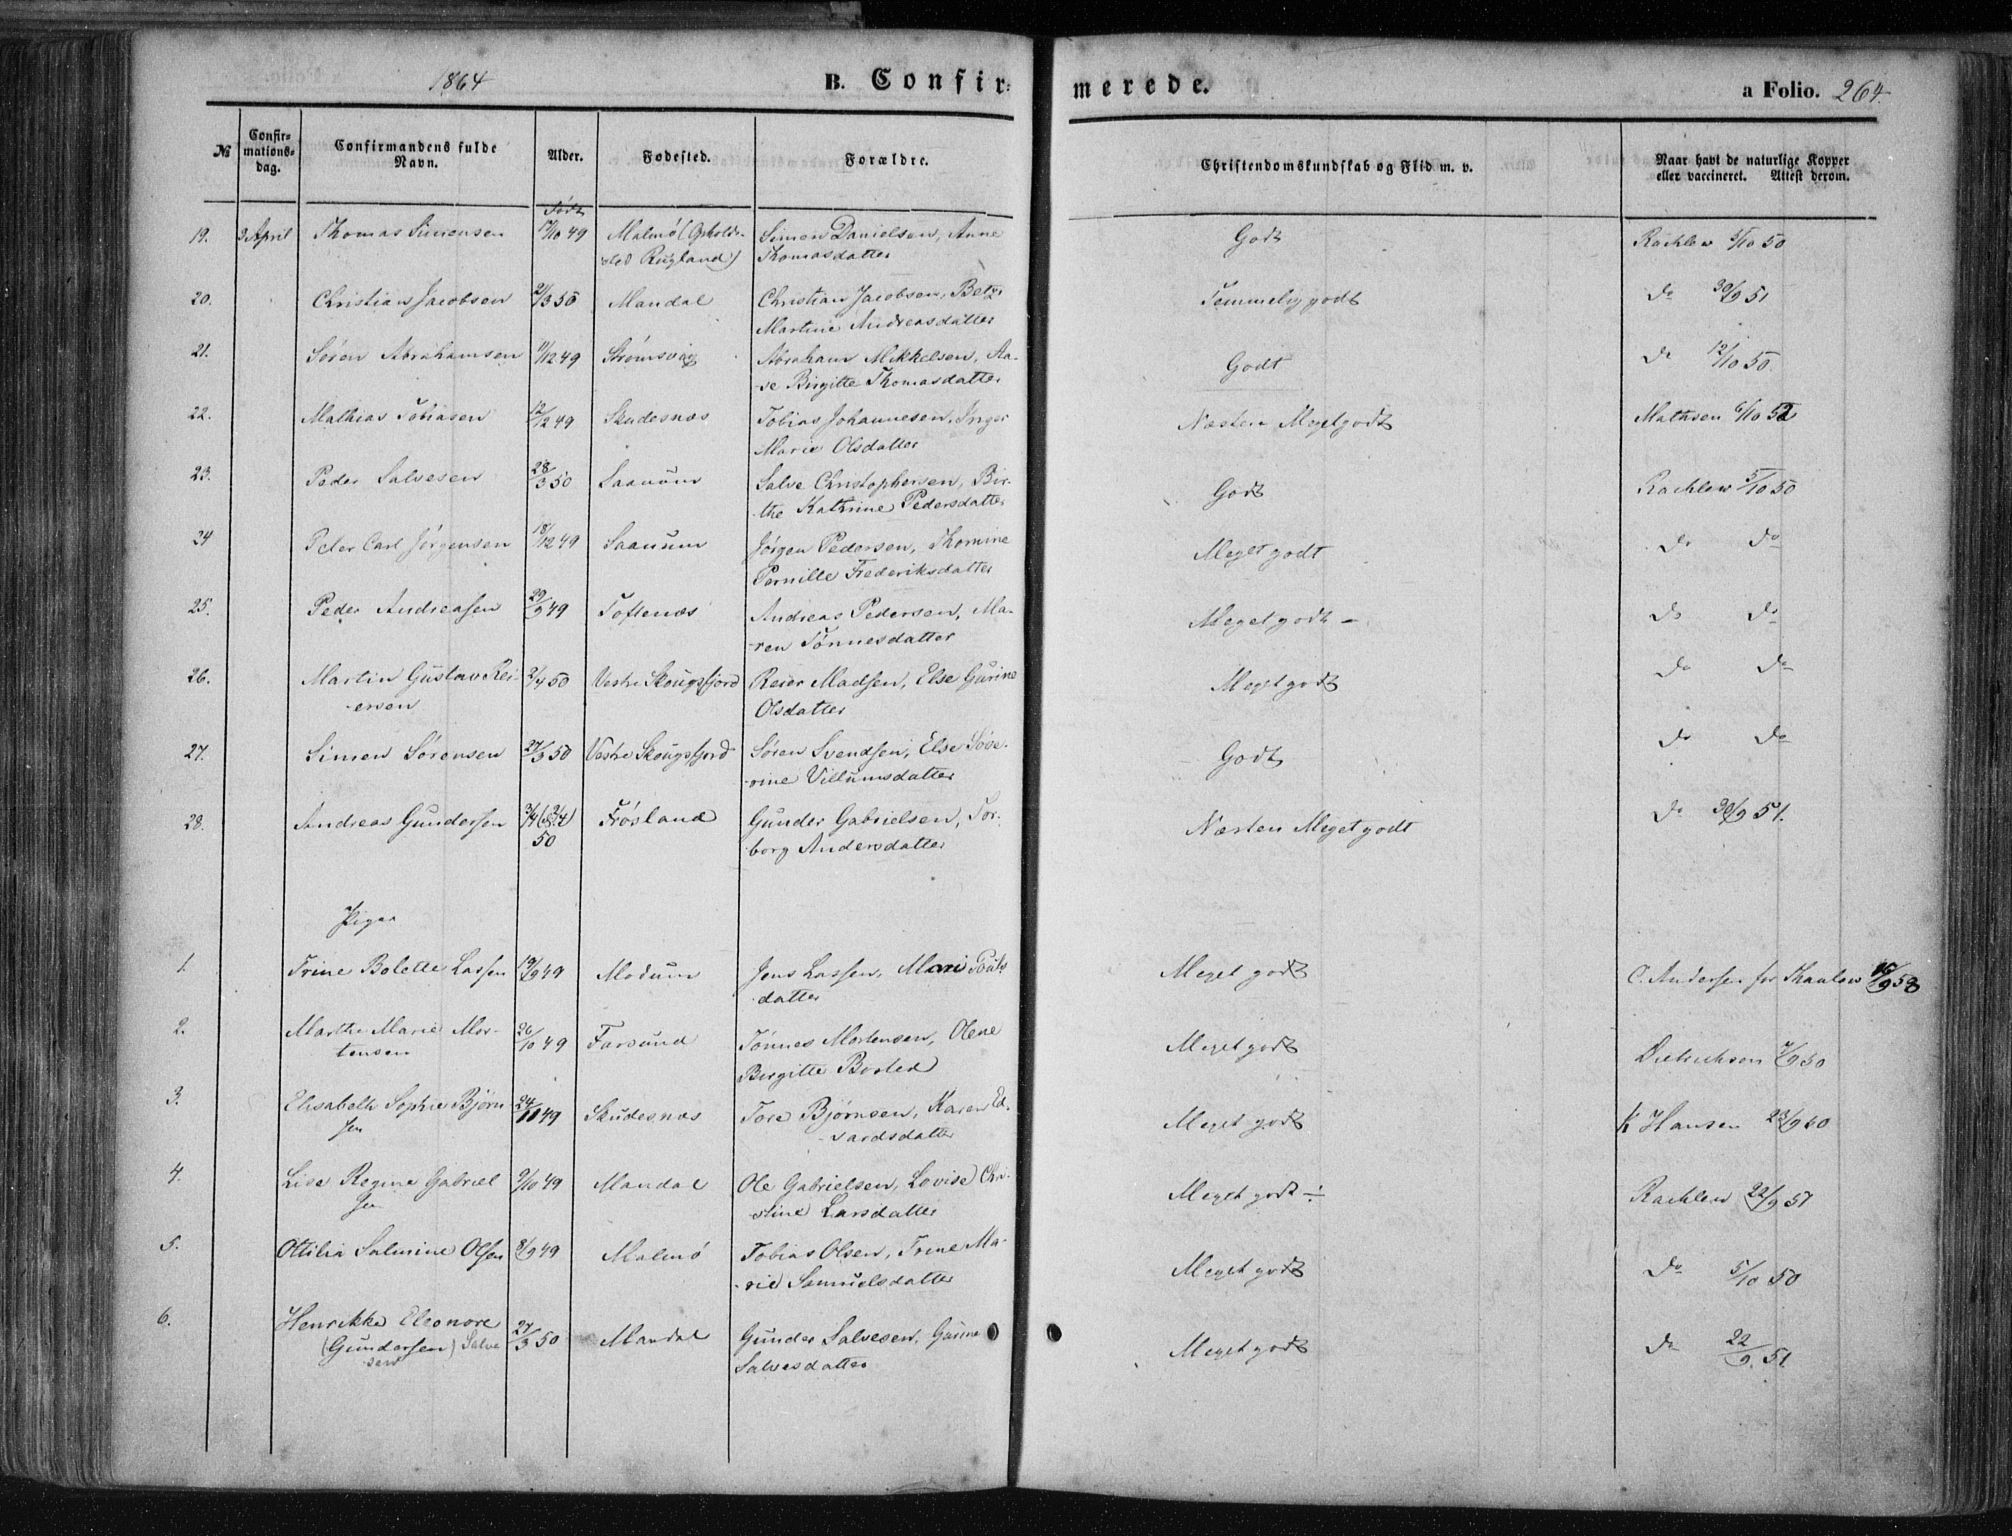 1864 B. Confir- merede. a Folio. 264.
№ Confir-mations-dag. Confirmandens fulde Navn. Alder. Fødested. Forældre. Christendomskundskab og Flid m. v. Naar havt de naturlige Kopper eller vaccineret. Attest derom.
Født
19. 3 April Thomas Simonsen 17/10 49 Malmø (Opholds- Simon Danielsen, Anne Godt Rachlew 5/10 50
sted Rugland) Thomasdatter
20. Christian Jacobsen 21/3 50 Mandal Christian Jacobsen, Betzi Temmelig godt do 30/9 51
Martine Andreasdatter
21. Søren Abrahamsen 11/12 49 Strømsvig Abraham Mikkelsen, Aa- Godt do 12/10 50.
se Birgitte Thomasdatter
22. Mathias Tobiasen 12/12 49 Skudesnæs Tobias Johannesen, Inger Næsten Meget godt Mathsen 6/10 52
Marie Olsdatter
23. Peder Salvesen 28/3 50 Saanum Salve Christophersen, Bir- Godt Rachlew 5/10 50
the Katrine Pedersdatter
24 Peter Carl Jørgensen 18/12 49 Saanum Jørgen Pedersen, Thomine Meget godt do do
Pernille Frederiksdatter
25. Peder Andreasen 29/9 49 Toftenæs Andreas Pedersen, Ma- Meget godt - do do
ren Tønnesdatter
26. Martin Gustav Rei- 2/4 50 Vestre Skougsfjord Reier Madsen, Else Gurine Meget godt do do
ersen Olsdatter
27. Simen Sørensen 27/3 50 Vestre Skougsfjord Søren Svendsen, Else Søve- Godt do do
rine Villumsdatter
28. Andreas Gundersen Frøsland Gunder Gabrielsen, Tor- Næsten Meget godt do 30/9 51.
50 borg Andersdatter
Piger
1. Trine Bolette Lassen 19/9 49 Modum Jens Lassen, Meget godt C. Andersen for Thaulow
datter
2. Marthe Marie Mor- 26/10 49 Farsund Tønnes Mortensen, Olene Meget godt Diedrichson 7/9 50
tensen Birgitte Bosted
3. Elisabeth Sophie Bjørn- 24/11 49 Skudesnæs Tore Bjørnsen, Karen Ed- Meget godt K Hansen 23/9 60
sen vardsdatter
4. Lise Regine Gabriel- 9/10 49 Mandal Ole Gabrielsen, Lovise Chri- Meget godt ÷ Rachlew 22/9 51
sen stine Larsdatter
5. Ottilia Salmine Olsen 8/9 49 Malmø Tobias Olsen, Trine Ma- Meget godt do 5/10 50
rie Samuelsdatter
6. Henrikke Eleonore 27/3 50 Mandal Gunder Salvesen, Gurine Meget godt do 22/9. 51.
(Gundersen) Salve- Salvesdatter
sen